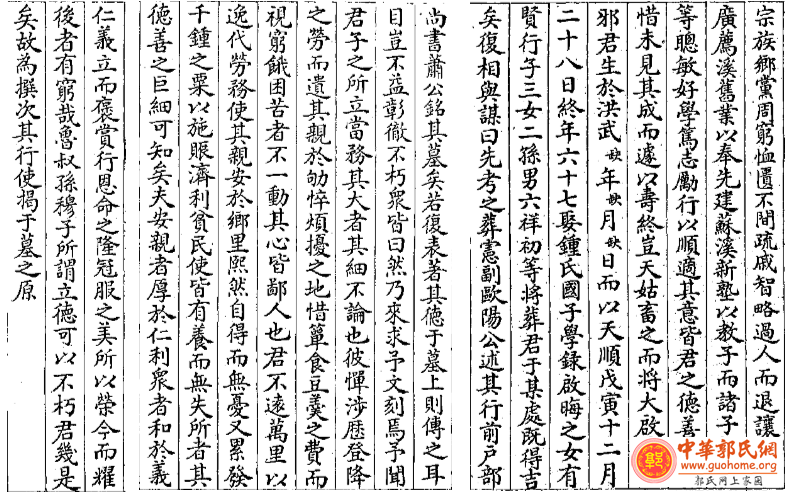 宗族鄉黨周窮恤匱不間疏戚智略過人而退讓
廣薦溪舊業以奉先建蘇溪新塾以教子而諸子
等聰敏好學篤志勵行以順適其意皆君之德善
惜未見其成而遽以壽終豈天姑畜之而将大啟
邪君生於洪武缺年缺月缺日而以天順戊寅十二月
二十八日終年六十七娶鍾氏國子學録啟晦之女有
賢行子三女二孫男六祥初等将葬君于某處既得吉
矣復相與謀曰先考之葬憲副歐陽公述其行前戶部
尚書蕭公銘其墓矣若復表著其德于墓上則傳之耳
目豈不益彰徹不朽衆皆曰然乃來求予文刻焉予聞
君子之所立當務其大者其細不論也彼憚涉歷登降
之勞而遺其親於劬悴煩擾之地惜簞食豆羹之費而
視窮餓困苦者不一動其心皆鄙人也君不遠萬里以
逸代勞務使其親安於鄉里熙然自得而無憂又累發
千鍾之粟以施賑濟利貧民使皆有養而無失所者其
德善之巨細可知矣夫安親者厚於仁利衆者和於義
仁義立而褒賞行恩命之隆冠服之美所以榮今而耀
後者有窮哉魯叔孫穆子所謂立德可以不朽君幾是
矣故為撰次其行使揭于墓之原
中華郭氏網
www.guohome.org
郭氏网上家园